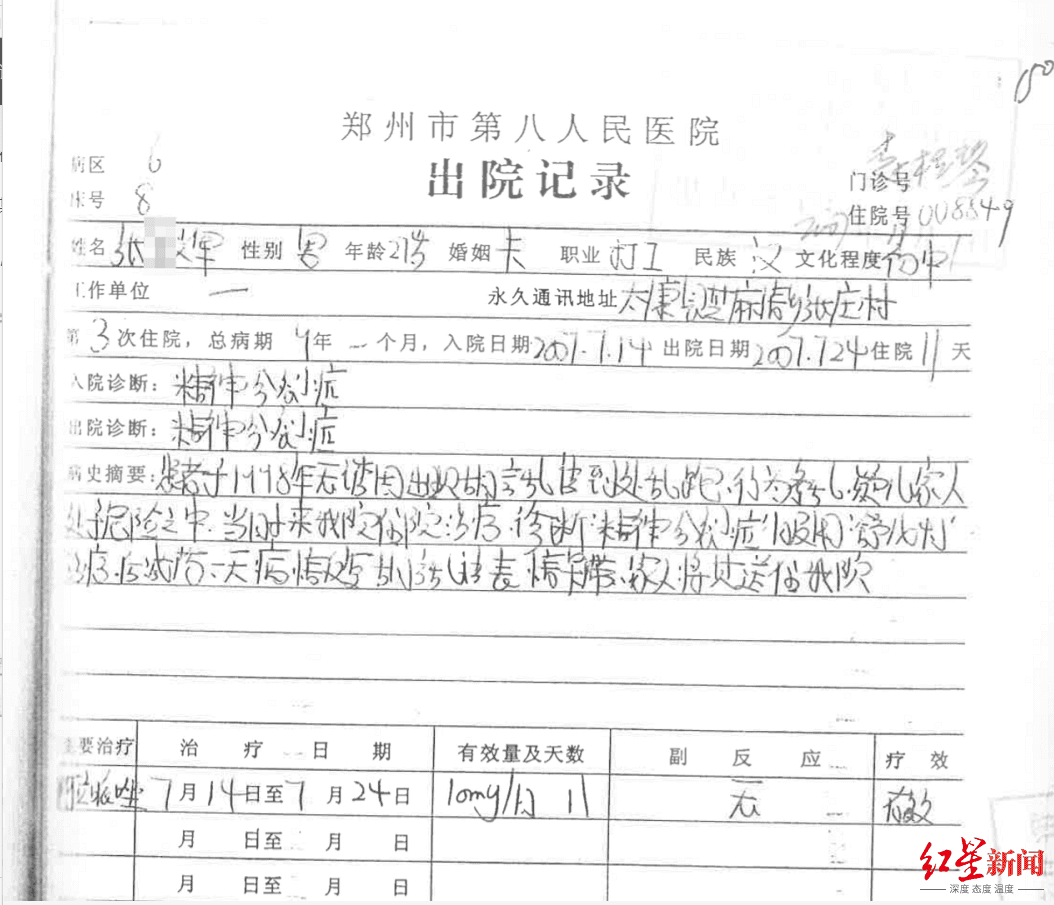 郑州市第八人民医院
出院记录
病区 6
床号 8
门诊号
住院号 008849
姓名 张 军 性别 男 年龄 27岁 婚姻 未 职业 打工 民族 汉 文化程度 初中
工作单位 一 永久通讯地址 太康县芝麻洼乡张庄村
第 3 次住院，总病期 9年 一 个月，入院日期 2007.7.14 出院日期 2007.7.24 住院 11 天
入院诊断：精神分裂症
出院诊断：精神分裂症
病史摘要：患者于1998年无诱因出现胡言乱语到处乱跑，行为紊乱，疑心家人
处于危险之中，当时来我院住院治疗，诊断"精神分裂症"服用
治疗，后减药，一天病情复发，胡言乱语，表情，家人将其送住我院
主要治疗 治疗日期 有效量及天数 副反应 疗效
阿立哌唑 7月14日至7月24日 10mg/日 11 无 有效
月 日至 月 日
月 日至 月 日
红星新闻
深度 态度 温度